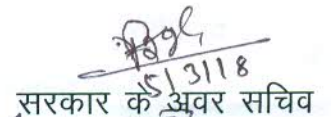 15/3/18
सरकार के अवर सचिव